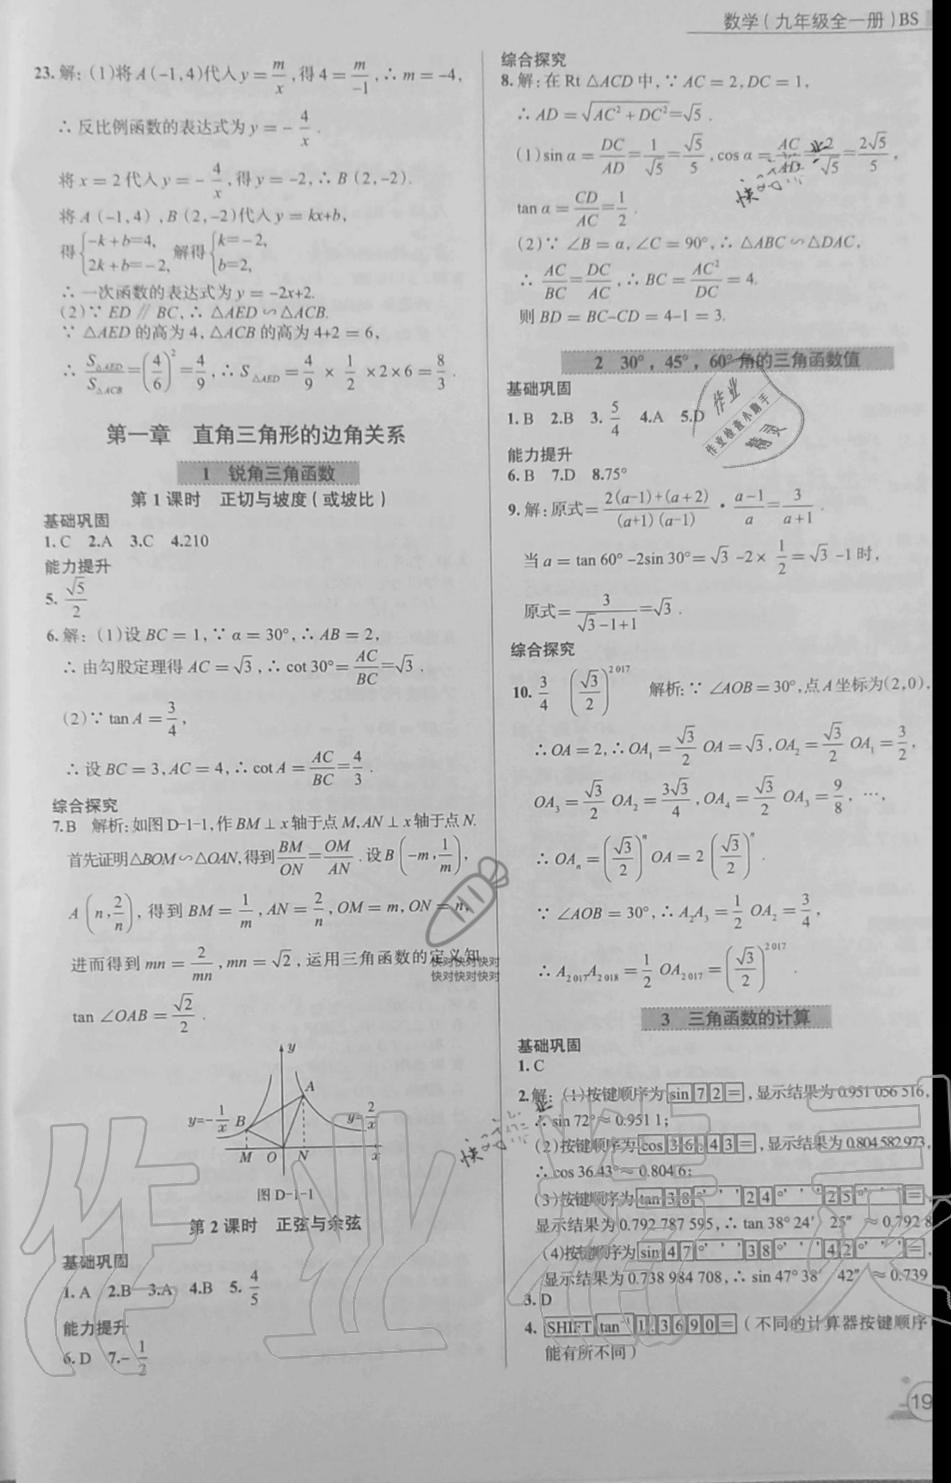 数学(九年级全一册)BS
23.解:(1)将A(-1,4)代入y=m/x,得4=m/-1,∴m=-4,
∴反比例函数的表达式为y=-4/x.
将x=2代入y=-4/x,得y=-2,∴B(2,-2).
将A(-1,4),B(2,-2)代入y=kx+b,
得{-k+b=4, 2k+b=-2, 解得{k=-2, b=2,
∴一次函数的表达式为y=-2x+2.
(2)∵ED∥BC,∴△AED∽△ACB.
∵△AED的高为4,△ACB的高为4+2=6,
∴S△AED/S△ACB=(4/6)²=4/9,∴S△AED=4/9×1/2×2×6=8/3.
第一章 直角三角形的边角关系
1 锐角三角函数
第1课时 正切与坡度(或坡比)
基础巩固
1.C 2.A 3.C 4.210
能力提升
5.√5/2
6.解:(1)设BC=1,∵α=30°,∴AB=2,
∴由勾股定理得AC=√3,∴cot 30°=AC/BC=√3.
(2)∵tan A=3/4,
∴设BC=3,AC=4,∴cot A=AC/BC=4/3.
综合探究
7.B 解析:如图D-1-1,作BM⊥x轴于点M,AN⊥x轴于点N.
首先证明△BOM∽△OAN,得到BM/ON=OM/AN.设B(-m,1/m),
A(n,2/n),得到BM=1/m,AN=2/n,OM=m,ON=n,
进而得到mn=2/mn,mn=√2,运用三角函数的定义知
tan∠OAB=√2/2.
y
A
y=-1/x B y=2/x
M O N x
图D-1-1
第2课时 正弦与余弦
基础巩固
1.A 2.B 3.A 4.B 5.4/5
能力提升
6.D 7.-1/2
综合探究
8.解:在Rt△ACD中,∵AC=2,DC=1,
∴AD=√AC²+DC²=√5.
(1)sin α=DC/AD=1/√5=√5/5,cos α=AC/AD=2/√5=2√5/5,
tan α=CD/AC=1/2.
(2)∵∠B=α,∠C=90°,∴△ABC∽△DAC,
∴AC/BC=DC/AC,∴BC=AC²/DC=4.
则BD=BC-CD=4-1=3.
2 30°,45°,60°角的三角函数值
基础巩固
1.B 2.B 3.5/4 4.A 5.D
能力提升
6.B 7.D 8.75°
9.解:原式=2(a-1)+(a+2)/(a+1)(a-1)·a-1/a=3/a+1.
当a=tan 60°-2sin 30°=√3-2×1/2=√3-1时,
原式=3/√3-1+1=√3.
综合探究
10.3/4 (√3/2)^2 017 解析:∵∠AOB=30°,点A坐标为(2,0),
∴OA=2,∴OA₁=√3/2 OA=√3,OA₂=√3/2 OA₁=3/2,
OA₃=√3/2 OA₂=3√3/4,OA₄=√3/2 OA₃=9/8,…,
∴OAₙ=(√3/2)ⁿ OA=2(√3/2)ⁿ.
∵∠AOB=30°,∴A₂A₃=1/2 OA₂=3/4,
∴A₂₀₁₇A₂₀₁₈=1/2 OA₂₀₁₇=(√3/2)^2 017.
3 三角函数的计算
基础巩固
1.C
2.解:(1)按键顺序为sin 7 2 =,显示结果为0.951 056 516,
∴sin 72°≈0.951 1;
(2)按键顺序为cos 3 6 . 4 3 =,显示结果为0.804 582 973,
∴cos 36.43°≈0.804 6;
(3)按键顺序为tan 3 8 °′″ 2 4 °′″ 2 5 °′″ =,
显示结果为0.792 787 595,∴tan 38°24′25″≈0.792 8
(4)按键顺序为sin 4 7 °′″ 3 8 °′″ 4 2 °′″ =,
显示结果为0.738 984 708,∴sin 47°38′42″≈0.739
3.D
4.SHIFT tan⁻¹ 1 . 3 6 9 0 =(不同的计算器按键顺序
能有所不同)
19
作业
作业检查小助手
精灵
快对快对快对
快对快对快对
作业精灵